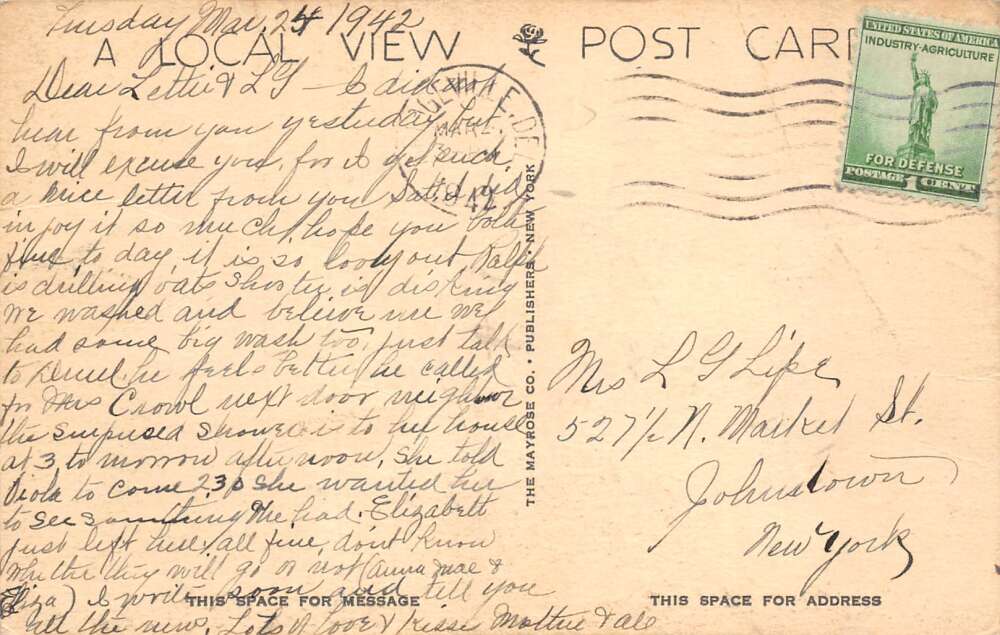 Tuesday Mar. 24 1942
A LOCAL VIEW
POST CARD
Dear Lettie & L G – I did not
hear from you yesterday but
I will excuse you, for I got such
a nice letter from you Sat. I did
injoy it so much, hope you both
fine to day, it is so lovly out Ralph
is drilling oats Shorter is disking
we washed and beleive me we
had some big wash too, just talk
to he feels better he called
for Mrs Crowl next door neighbor
the surprised shower is to her house
at 3, to morrow afternoon, She told
Viola to come 230 she wanted her
to see something she had. Elizabeth
just left here, all fine, don't know
whether they will go or not (Anna Mae &
Eliza) I write soon and tell you
all the news. Lots of love & kisses Mattie & all
THIS SPACE FOR MESSAGE
THE MAYROSE CO. • PUBLISHERS • NEW YORK
MAR 24
1942
DE
UNITED STATES OF AMERICA
INDUSTRY-AGRICULTURE
FOR DEFENSE
POSTAGE 1 CENT
Mrs L G Lipe
527 1/2 N. Market St.
Johnstown
New York
THIS SPACE FOR ADDRESS